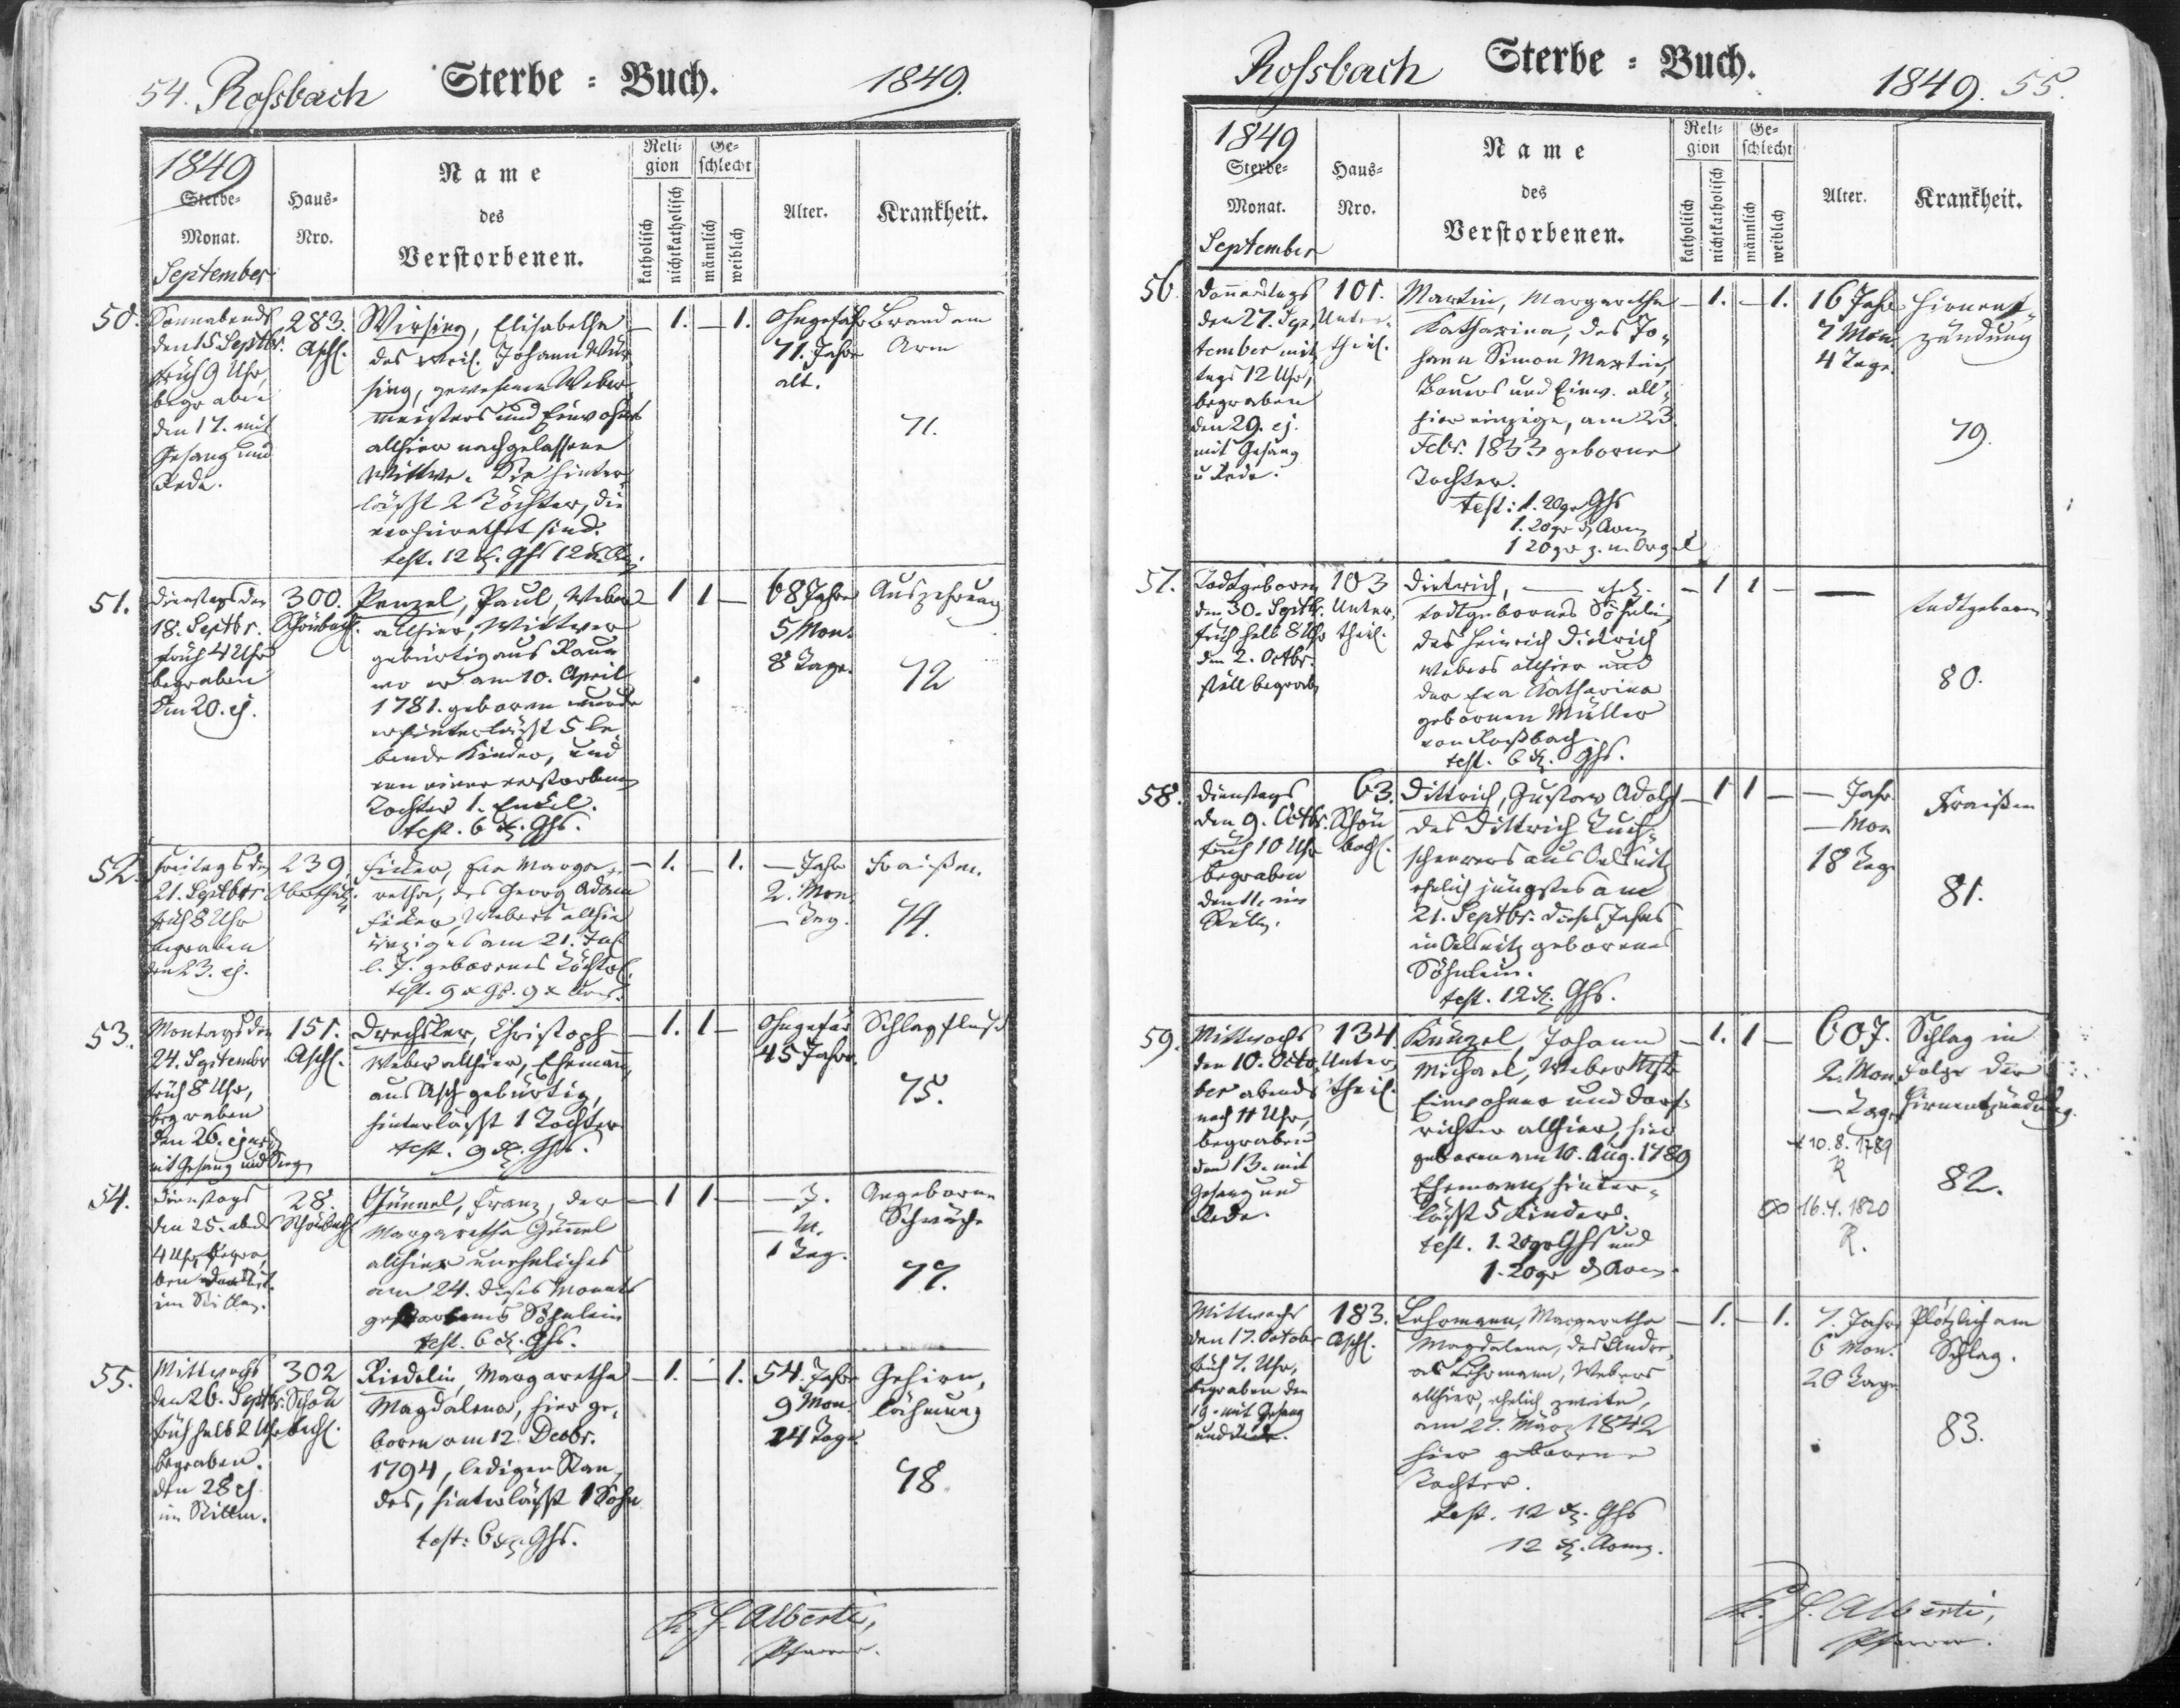 54. Rossbach Sterbe = Buch. 1849.
1849
Sterbe-
Monat.
September
Haus-
Nro.
Name
des
Verstorbenen.
Reli-
gion
katholisch
nichtkatholisch
Ge-
schlecht
männlich
weiblich
Alter.
Krankheit.
50.
Sonnabends
den 15 Septbr.
früh 9 Uhr,
begraben
den 17. mit
Gesang und
Rede.
283.
Asch.
Wirsing, Elisabetha
des weil. Johann Wir-
sing, gewesenen Weber-
meisters und Einwohners
allhier nachgelassene
Wittwe. Sie hinter-
läßt 2 Töchter, die
verheirathet sind.
test. 12 x. Ghs 12 x.
— 1. — 1.
Ohngefähr
71. Jahr
alt.
Brand am
Arm
71.
51.
Dienstags den
18. Septbr.
früh 4 Uhr
begraben
den 20. ej.
300.
Schönbach.
Penzel, Paul, Weber
allhier, Wittwer
gebürtig aus Raun
wo er am 10. April
1781. geboren wurde
er hinterläßt 5 le-
bende Kinder, und
von einer verstorbenen
Tochter 1. Enkel.
test. 6 x. Ghs.
1 1 —
68 Jahre
5 Mon.
8 Tage.
Auszehrung
72
52.
Freitags den
21. Septbr.
früh 8 Uhr
begraben
den 23. ej.
239.
Obertheil.
Ficker, Eva Marga-
retha, des Georg Adam
Ficker, Webers allhier
einziges am 21. Jul
l. J. geborenes Töchterl.
test. 9 x Ghs. 9 x Arm.
— 1. — 1.
— Jahr
2. Mon.
— Tag.
Fraißen.
74.
53.
Montags den
24. Septembr
früh 8 Uhr,
begraben
den 26. ejusd
mit Gesang und Seg.
151.
Asch.
Drechsler, Christoph
Weber allhier, Ehemann,
aus Asch gebürtig,
hinterläßt 1 Tochter
test. 9 x. Ghs.
— 1. 1 —
Ohngefär
45 Jahr.
Schlagfluß
75.
54.
Dienstags
den 25. abends
4 Uhr, begra-
ben
im Stillen.
28.
Schönbach
Günnel, Franz, der
Margaretha Günnel
allhier uneheliches
am 24. dieses Monats
gebornes Söhnlein
test. 6 x. Ghs.
— 1 1 —
— J.
— M.
1 Tag.
Angeborne
Schwäche
77.
55.
Mittwochs
den 26. Septbr.
früh halb 2 Uhr
begraben.
den 28 ej
im Stillen.
302
Schön
bach.
Riedelin, Margaretha
Magdalena, hier ge-
boren am 12. Decbr.
1794, ledigen Stan-
des, hinterläßt 1 Sohn
test: 6 x. Ghs.
— 1. — 1.
54. Jahr
9 Mon.
14 Tage.
Gehirn-
lähmung
78
Alberti,
Pfarrer.
Rossbach Sterbe = Buch. 1849. 55.
1849
Sterbe-
Monat.
September
Haus-
Nro.
Name
des
Verstorbenen.
Reli-
gion
katholisch
nichtkatholisch
Ge-
schlecht
männlich
weiblich
Alter.
Krankheit.
56.
Donnerstags
den 27. Sep-
tember mit-
tags 12 Uhr,
begraben
den 29. ej.
mit Gesang
u Rede.
101.
Unter-
theil.
Martin, Margaretha
Katharina, des Jo-
hann Simon Martin,
Bauers und Einw. all-
hier einzige, am 23.
Febr. 1833 geborne
Tochter.
test: 1. 20gr Ghs
1. 20gr d. Arm
1 20gr z. n. Orgel
— 1. — 1.
16 Jahr
7 Mon.
4 Tage.
Hirnent-
zündung
79.
57.
Todtgeboren
den 30. Septbr.
früh halb 8 Uhr
den 2. Octbr.
still begrab
103
Unter-
theil.
Dietrich, — ehel.
todtgebornes Söhnlein
des Heinrich Dietrich
Webers allhier und
der Eva Katharina
gebornen Müller
von Roßbach.
test. 6 x. Ghs.
— 1 1 —
—
todtgeboren
80.
58.
Dienstags
den 9. Octbr.
früh 10 Uhr
begraben
den 11. im
Stillen.
63.
Schön
bach.
Dittrich, Gustav Adolf
des Dittrich Tuch-
scherers aus Oelsnitz
ehelich jüngstes am
21. Septbr. dieses Jahres
in Oelsnitz geborenes
Söhnlein.
test. 12 x. Ghs.
— 1 1 —
— Jahr
— Mon
18 Tage
Fraißen
81.
59.
Mittwochs
den 10. Octo-
ber abends
nach 11 Uhr,
begraben
den 13. mit
Gesang und
Rede.
134.
Unter-
theil.
Künzel, Johann
Michael, Webermstr
Einwohner und Dorf-
richter allhier, hier
geboren am 10. Aug. 1789
Ehemann, hinter-
läßt 5 Kinder.
test. 1. 20gr Ghs und
1. 20gr d Arm.
— 1. 1 —
60 J.
2. Mon
— Tage
* 10.8.1789
R
∞ 16.4.1820
R.
Schlag in
Folge der
Hirnentzündung.
82.
Mittwochs
den 17. Octobr
früh 7. Uhr,
begraben den
19. mit Gesang
und Rede.
183.
Asch.
Lehrmann, Margaretha
Magdalena, des Andre-
as Lehrmann, Webers
allhier, ehelich zweite,
am 27. März 1842
hier geborene
Tochter.
test. 12 x. Ghs
12 x. Arm.
— 1. — 1.
7. Jahr
6 Mon.
20 Tage
Plötzlich am
Schlag.
83.
Alberti,
Pfarrer.